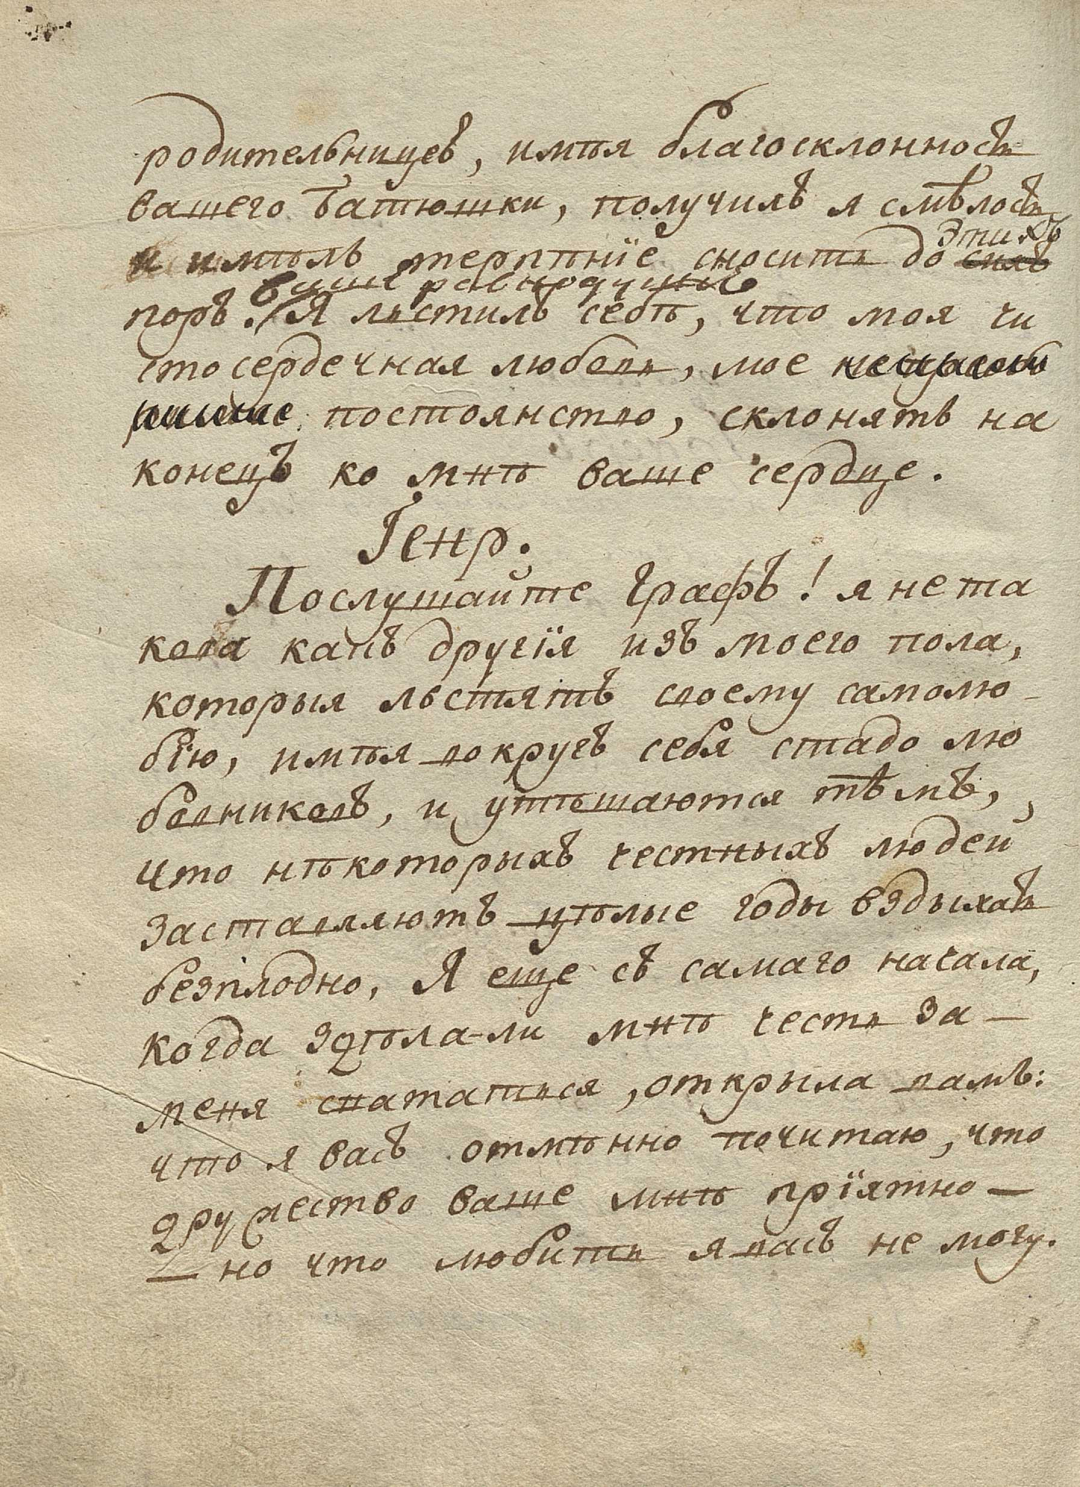 родительницеѣ, имѣя благосклонность
вашего батюшки, получилъ я смѣлость
этихъ
и имѣлъ терпѣніе сносить до сихъ
ваше равнодушие
поръ. Я льстилъ себѣ, что моя чи
стосердечная любовь, мое
постоянство, склонятъ на
конецъ ко мнѣ ваше сердце.
Генр.
Послушайте Графъ! я не та
кова какъ другія изъ моего пола,
которыя льстятъ своему самолю-
бію, имѣя вокругъ себя стадо лю
бовниковъ, и утѣшаются тѣмъ,
что нѣкоторыхъ честныхъ людей
заставляютъ цѣлые годы вздыхать
безплодно, Я еще съ самаго начала,
когда здѣла-ли мнѣ честь за-
меня свататься, открыла вамъ:
что я васъ отмѣнно почитаю, что
дружество ваше мнѣ пріятно —
— но что любить я васъ не могу.